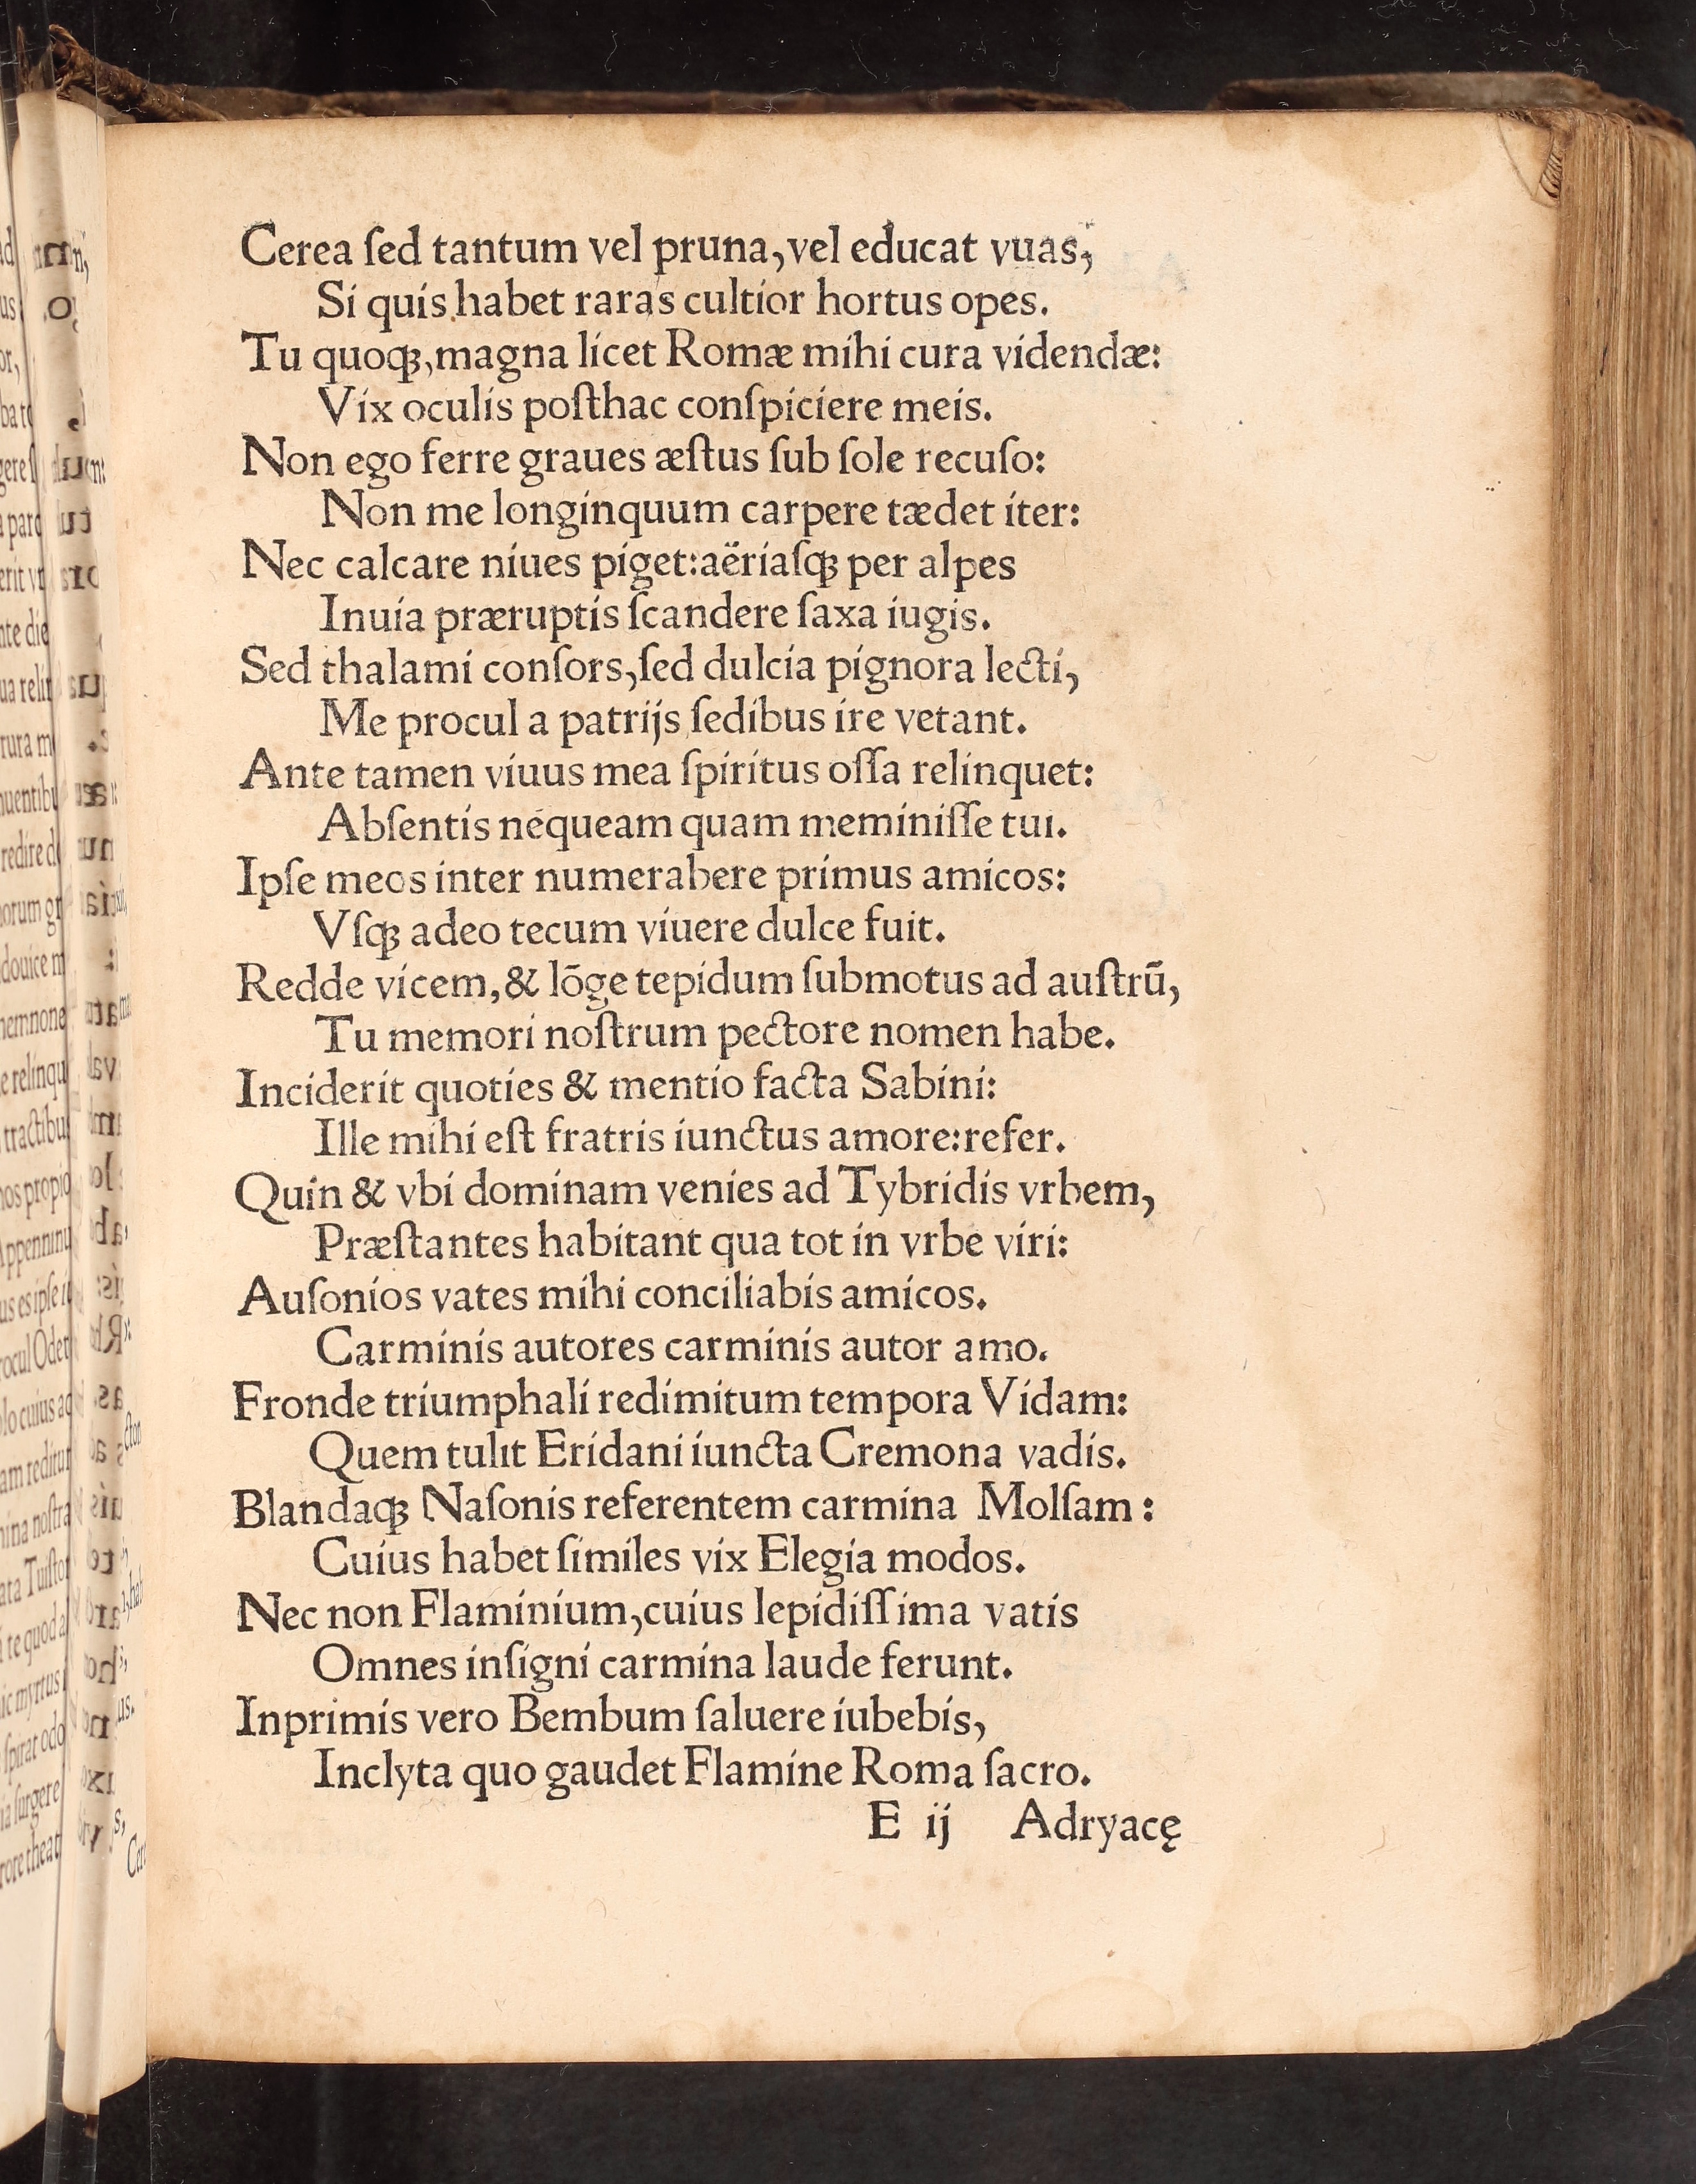 Cerea ſed tantum vel pruna,vel educat vuas,
Si quis habet raras cultior hortus opes.
Tu quoqꝫ,magna licet Romæ mihi cura videndæ:
Vix oculis poſthac conſpiciere meis.
Non ego ferre graues æſtus ſub ſole recuſo:
Non me longinquum carpere tædet iter:
Nec calcare niues piget:aëriaſqꝫ per alpes
Inuia præruptis ſcandere ſaxa iugis.
Sed thalami conſors,ſed dulcia pignora lecti,
Me procul a patrijs ſedibus ire vetant.
Ante tamen viuus mea ſpiritus oſſa relinquet:
Abſentis néqueam quam meminiſſe tui.
Ipſe meos inter numerabere primus amicos:
Vſqꝫ adeo tecum viuere dulce fuit.
Redde vicem,& lōge tepidum ſubmotus ad auſtrū,
Tu memori noſtrum pectore nomen habe.
Inciderit quoties & mentio facta Sabini:
Ille mihi eſt fratris iunctus amore:refer.
Quin & vbi dominam venies ad Tybridis vrbem,
Præſtantes habitant qua tot in vrbe viri:
Auſonios vates mihi conciliabis amicos.
Carminis autores carminis autor amo.
Fronde triumphali redimitum tempora Vidam:
Quem tulit Eridani iuncta Cremona vadis.
Blandaqꝫ Naſonis referentem carmina Molſam:
Cuius habet ſimiles vix Elegia modos.
Nec non Flaminium,cuius lepidiſſima vatis
Omnes inſigni carmina laude ferunt.
Inprimis vero Bembum ſaluere iubebis,
Inclyta quo gaudet Flamine Roma ſacro.
E ij Adryacę